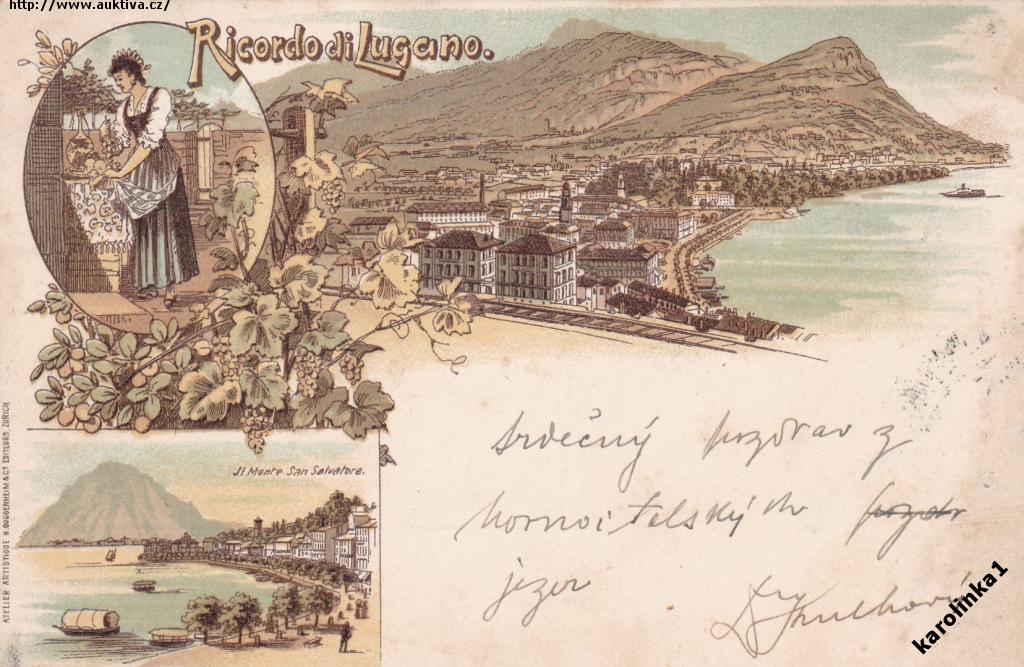 http://www.auktiva.cz/
Ricordo di Lugano.
Il Monte San Salvatore.
ATELIER ARTISTIQUE H. GUGGENHEIM & Co. EDITEURS, ZÜRICH
Srdečný pozdrav z
hornoitalských
jezer
karolinka1